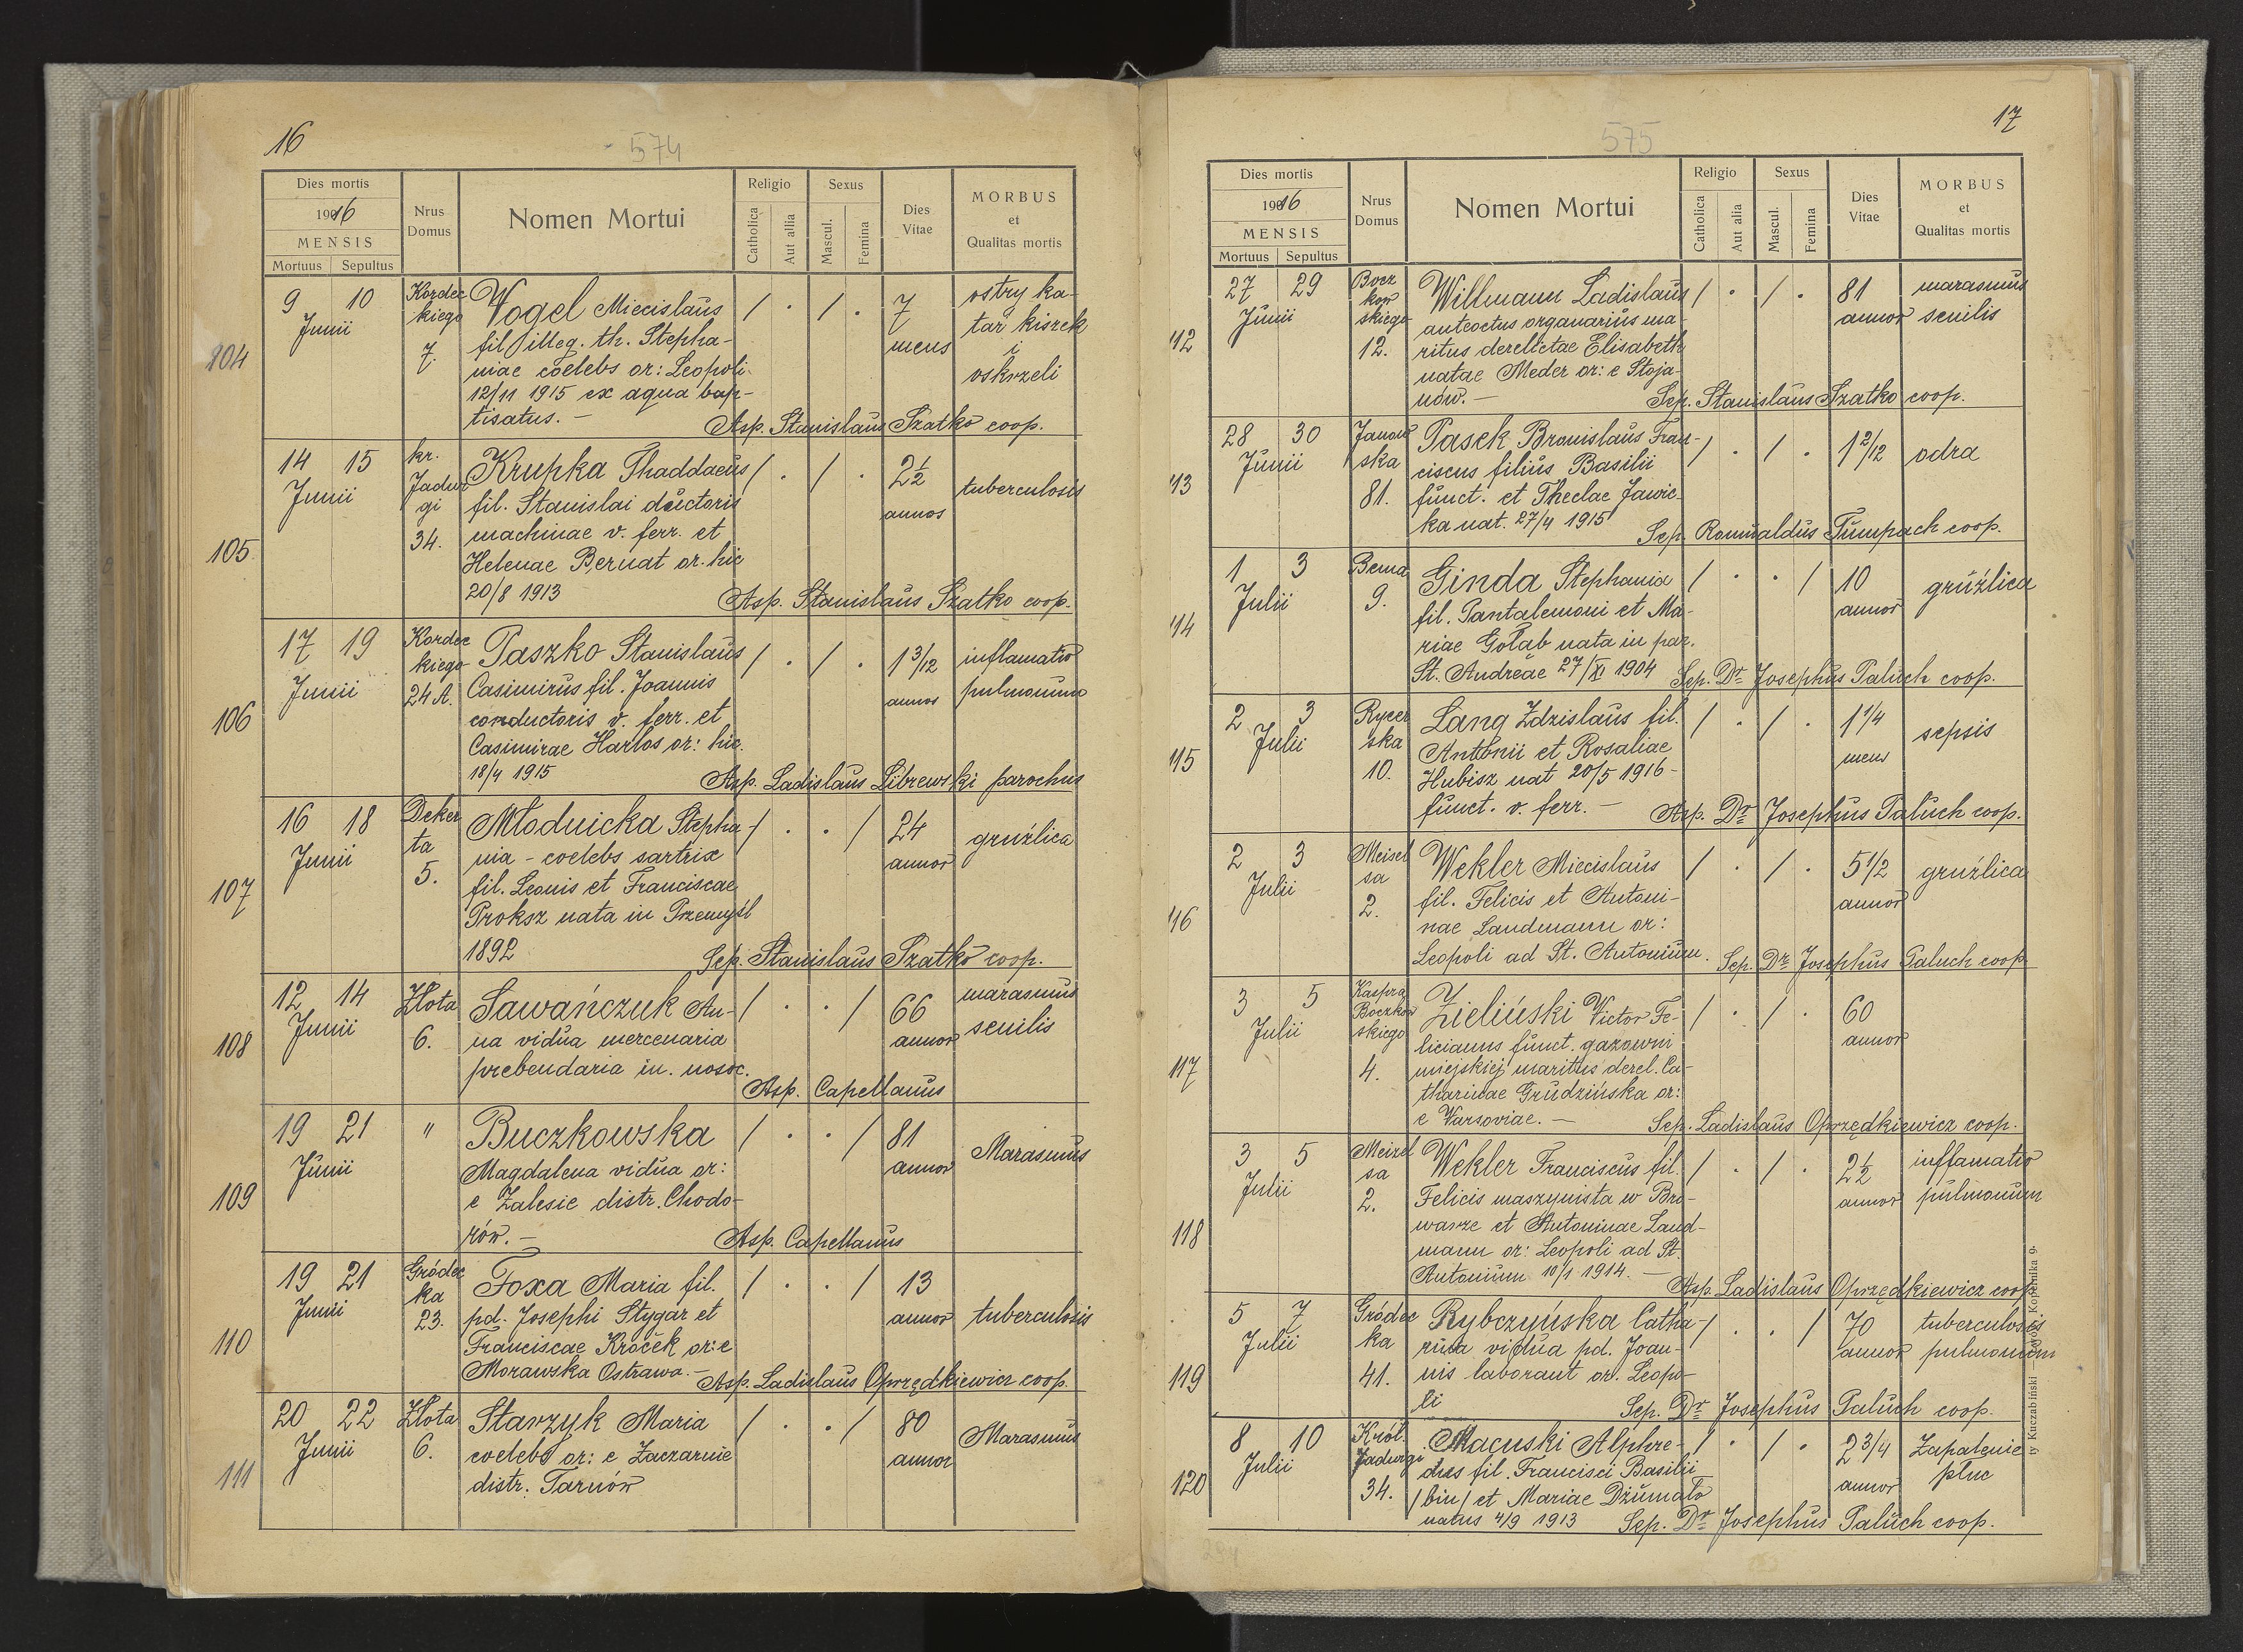 16
574
Dies mortis
1916
MENSIS
Mortuus Sepultus
Nrus Domus
Nomen Mortui
Religio
Catholica
Aut alia
Sexus
Mascul.
Femina
Dies Vitae
MORBUS
et
Qualitas mortis
104
9 10
Junii
Kordec
kiego
7.
Vogel Miecislaus
fil illeg. th. Stepha-
niae coelebs or: Leopoli
12/11 1915 ex aqua bap-
tisatus. —
/ . / .
7
mens
ostry ka-
tar kiszek
i
oskrzeli
Asp. Stanislaus Szatko coop.
105
14 15
Junii
kr.
Jadwi
gi
34.
Krupka Thaddaeus
fil. Stanislai ductoris
machinae v. ferr. et
Helenae Bernat or. hic
20/8 1913
/ . / .
2½
annos
tuberculosis
Asp. Stanislaus Szatko coop.
106
17 19
Junii
Kordec
kiego
24 A.
Paszko Stanislaus
Casimirus fil. Joannis
conductoris v. ferr. et
Casimirae Harlos or: hic.
18/4 1915
/ . / .
1 3/12
annos
inflamatio
pulmonum
Asp. Ladislaus Librewski parochus
107
16 18
Junii
Deker
ta
5.
Młodnicka Stepha-
nia - coelebs sartrix
fil. Leonis et Franciscae
Proksz nata in Przemyśl
1892
/ . . /
24
annor
gruźlica
Sep. Stanislaus Szatko coop.
108
12 14
Junii
Złota
6.
Sawańczuk An-
na vidua mercenaria
prebendaria in. nosoc.
/ . . /
66
annor
marasmus
senilis
Asp. Capellanus
109
19 21
Junii
"
Buczkowska
Magdalena vidua or:
e Zalesie distr. Chodo-
rów. —
/ . . /
81
annor
Marasmus
Asp. Capellanus
110
19 21
Junii
Gródec
ka
23.
Foxa Maria fil.
pd. Josephi Stygar et
Franciscae Kroček or: e
Morawska Ostrawa. —
/ . . /
13
annor
tuberculosis
Asp. Ladislaus Oprzędkiewicz coop.
111
20 22
Junii
Złota
6.
Starzyk Maria
coelebs or: e Zaczarnie
distr. Tarnów
/ . . /
80
annor
Marasmus
17
575
Dies mortis
1916
MENSIS
Mortuus Sepultus
Nrus Domus
Nomen Mortui
Religio
Catholica
Aut alia
Sexus
Mascul.
Femina
Dies Vitae
MORBUS
et
Qualitas mortis
112
27 29
Junii
Bocz
kow
skiego
12.
Willmann Ladislaus
anteoctus organarius ma-
ritus derelictae Elisabeth
natae Meder or: e Stoja-
nów. —
/ . / .
81
annor
marasmus
senilis
Sep. Stanislaus Szatko coop.
113
28 30
Junii
Janow
ska
81.
Pasek Bronislaus Fran-
ciscus filius Basilii
funct. et Theclae Jawic-
ka nat. 27/4 1915
/ . / .
1 2/12
odra
Sep. Romualdus Tumpach coop.
114
1 3
Julii
Bema
9.
Ginda Stephania
fil. Pantalemoni et Ma-
riae Gołąb nata in par.
St. Andreae 27/XI 1904
/ . . /
10
annor
gruźlica
Sep. Dr Josephus Paluch coop.
115
2 3
Julii
Rycer
ska
10.
Lang Zdzislaus fil.
Antonii et Rosaliae
Hubisz nat 20/5 1916 -
funct. v. ferr. —
/ . / .
1 1/4
mens
sepsis
Asp. Dr Josephus Paluch coop.
116
2 3
Julii
Meisel
sa
2.
Wekler Miecislaus
fil. Felicis et Antoni-
nae Landmann or:
Leopoli ad St. Antonium.
/ . / .
5 1/2
annor
gruźlica
Sep. Dr Josephus Paluch coop.
117
3 5
Julii
Kaspra
Boczkow
skiego
4.
Zieliński Victor Fe-
licianus funct. gazowni
miejskiej maritus derel. Ca-
tharinae Grudzińska or:
e Varsoviae. —
/ . / .
60
annor
Sep. Ladislaus Oprzędkiewicz coop.
118
3 5
Julii
Meizel
sa
2.
Wekler Franciscus fil.
Felicis maszynista w Bro-
warze et Antoninae Land-
mann or: Leopoli ad St.
Antonium 10/1 1914. —
/ . / .
2½
annor
inffamatio
pulmonum
Asp. Ladislaus Oprzędkiewicz coop.
119
5 7
Julii
Gródec
ka
41.
Rybczyńska Catha-
rina vidua pd. Joan-
nis laborant or. Leopo-
li
/ . . /
70
annor
tuberculosis
pulmonum
Sep. Dr Josephus Paluch coop.
120
8 10
Julii
Król.
Jadwigi
34.
Macuski Alphre-
dus fil. Francisci Basilii
/bin/ et Mariae Dżumało
natus 4/9 1913
/ . / .
2 3/4
annor
Zapalenie
płuc
Sep. Dr Josephus Paluch coop.
Kuczabiński Kopernika 9.